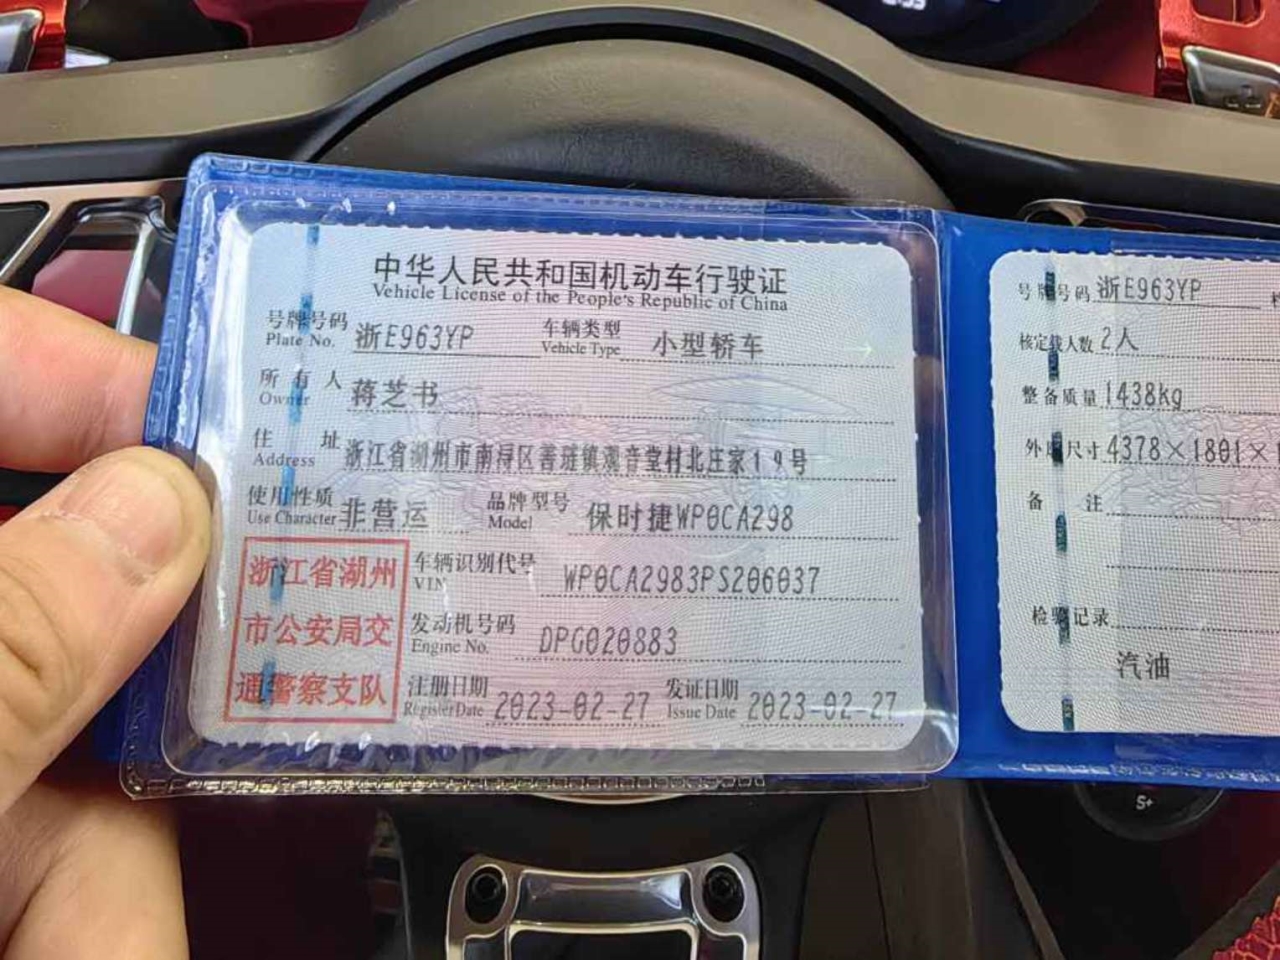 中华人民共和国机动车行驶证
Vehicle License of the People's Republic of China
号牌号码 浙E963YP 车辆类型 小型轿车
Plate No. Vehicle Type
所有人 蒋芝书
Owner
住址 浙江省湖州市南浔区善琏镇观音堂村北庄家19号
Address
使用性质 非营运 品牌型号 保时捷WP0CA298
Use Character Model
浙江省湖州
市公安局交
通警察支队
车辆识别代号 WP0CA2983PS206037
VIN
发动机号码 DPG020883
Engine No.
注册日期 2023-02-27 发证日期 2023-02-27
Register Date Issue Date
号牌号码 浙E963YP
核定载人数 2人
整备质量 1438kg
外廓尺寸 4378×1801×1
备注
检验记录
汽油
S+